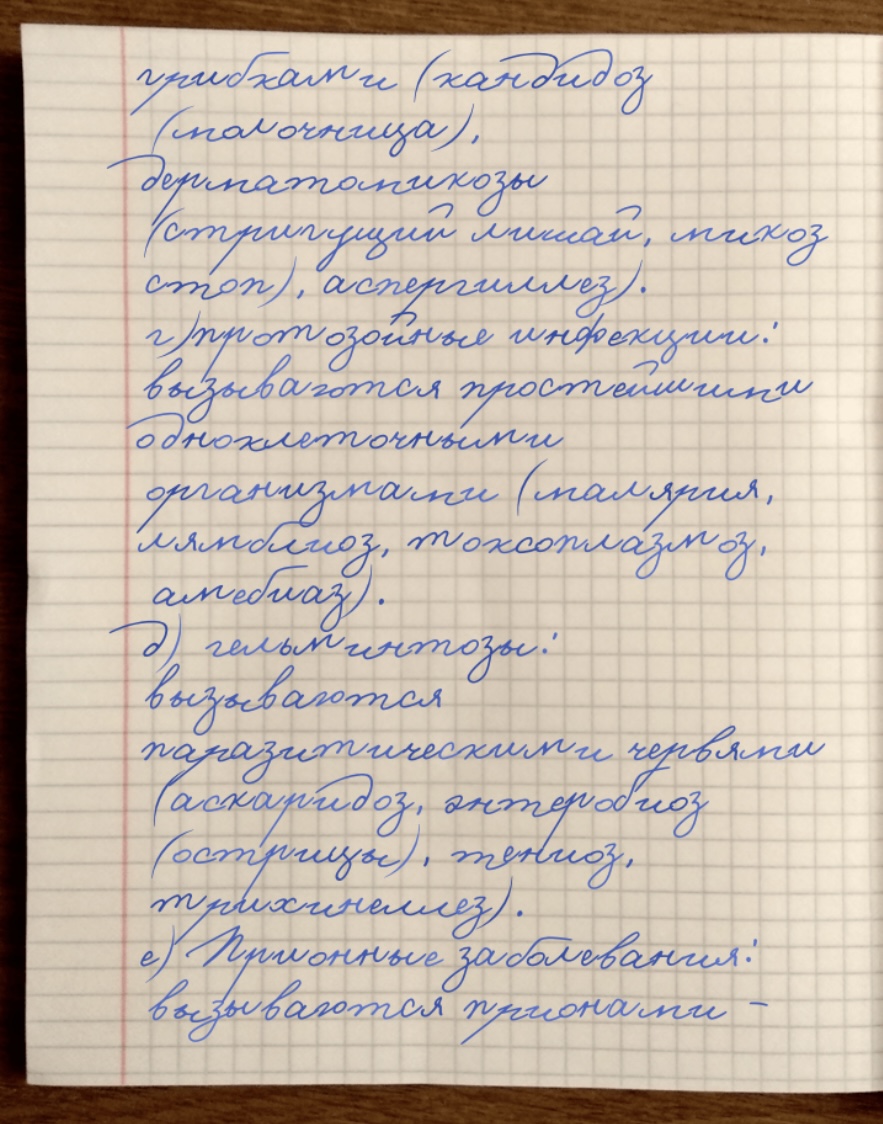 грибками (кандидоз
(молочница),
дерматомикозы
(стригущий лишай, микоз
стоп), аспергиллез).
г) протозойные инфекции:
вызываются простейшими
одноклеточными
организмами (малярия,
лямблиоз, токсоплазмоз,
амебиаз).
д) гельминтозы:
вызываются
паразитическими червями
(аскаридоз, энтеробиоз
(острицы), тениоз,
трихинеллез).
е) Прионные заболевания:
вызываются прионами –